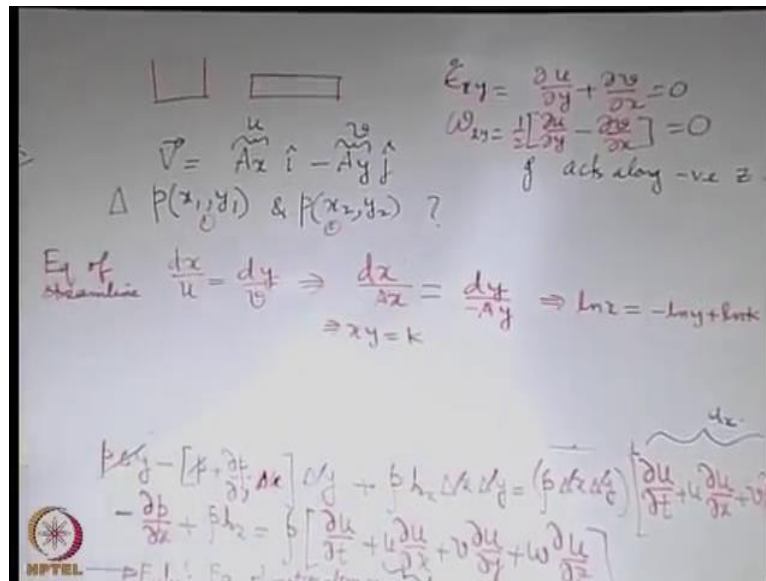 ε̇xy = ∂u/∂y + ∂v/∂x = 0
ωxy = 1/2 [∂u/∂y − ∂v/∂x] = 0
u v
V⃗ = Ax î − Ay ĵ
g acts along -ve z
Δ p(x₁, y₁) & p(x₂, y₂) ?
① ②
Eq of streamline dx/u = dy/v ⇒ dx/Ax = dy/−Ay ⇒ ln x = −ln y + ln k
⇒ xy = k
pΔy − [p + ∂p/∂x Δx] Δy + ρ bx Δx Δy = (ρ Δx Δy) [∂u/∂t + u ∂u/∂x + v
− ∂p/∂x + ρ bx = ρ [∂u/∂t + u ∂u/∂x + v ∂u/∂y + w ∂u/∂z]
NPTEL